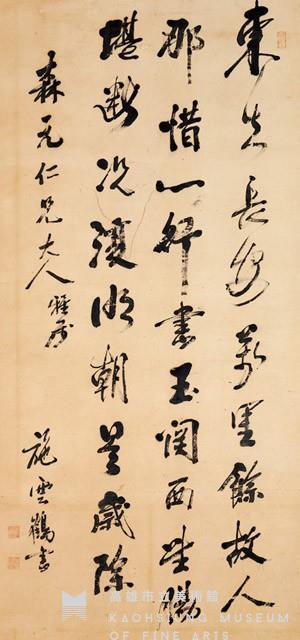 東去長安萬里餘故人
那惜一行書玉關西望腸
堪斷況復明朝是歲除
森元仁兄大人雅屬
施雲鶴書
高雄市立美術館
KAOHSIUNG MUSEUM
OF FINE ARTS